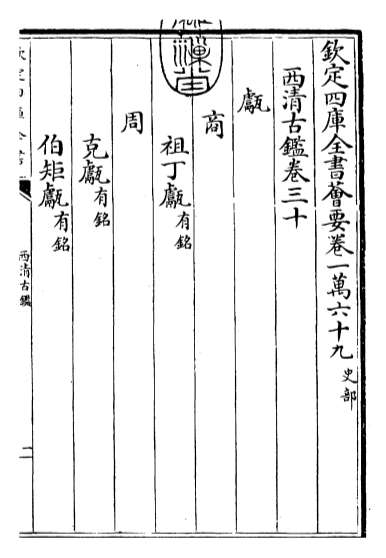 欽定四庫全書薈要卷一萬六十九 史部
西清古鑑卷三十
甗
商
祖丁甗有銘
周
克甗有銘
伯矩甗有銘
西清古鑑